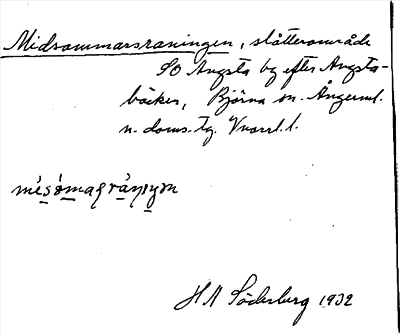 Midsommarsraningen, slåtterområde
SO Angsta by efter Angsta-
bäcken, Björna sn. Ångerml.
n. doms. tg. Vnorrl. l.
H A Söderberg 1932